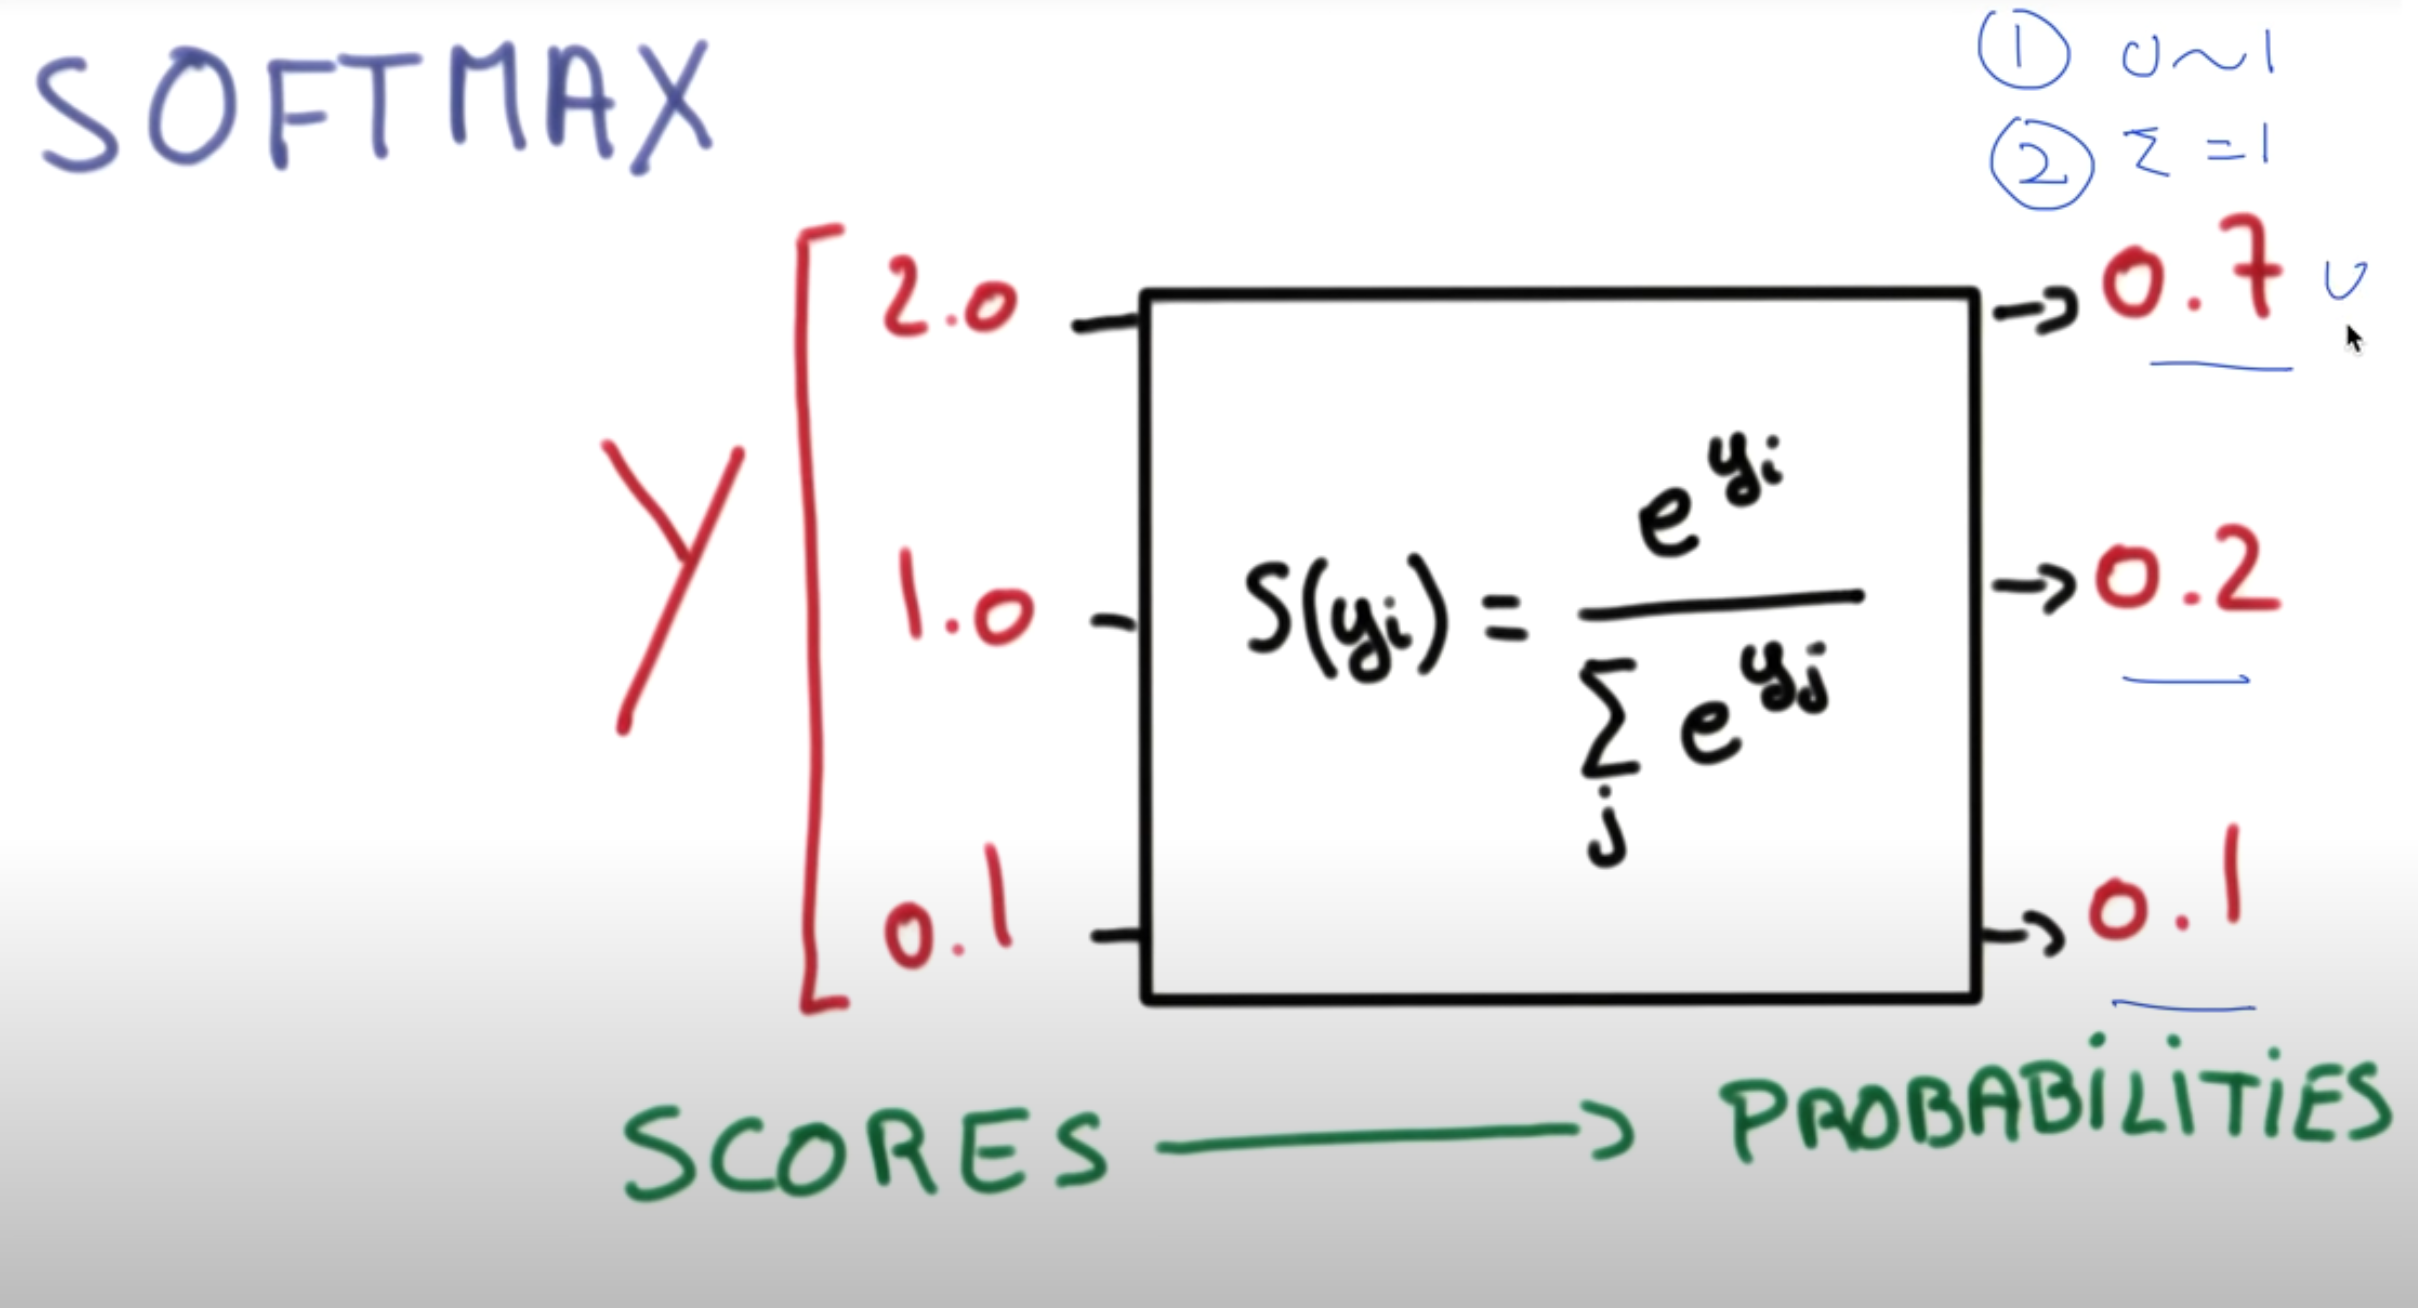 SOFTMAX
① 0~1
② Σ =1
Y
2.0
1.0
0.1
S(yi) = e^yi / Σj e^yj
0.7
0.2
0.1
SCORES → PROBABiLiTiES